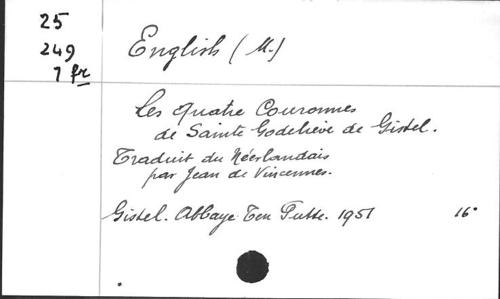 25
249
7 fr
English (M.)
Les Quatre Couronnes
de Sainte Godelieve de Gistel.
Traduit du Néerlandais
par Jean de Vincennes.
Gistel. Abbaye Ten Putte. 1951 16°